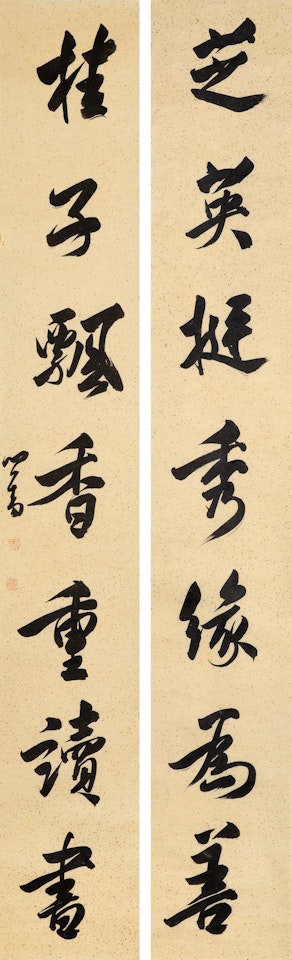 芝英挺秀緣為善
桂子飄香重讀書
心畬